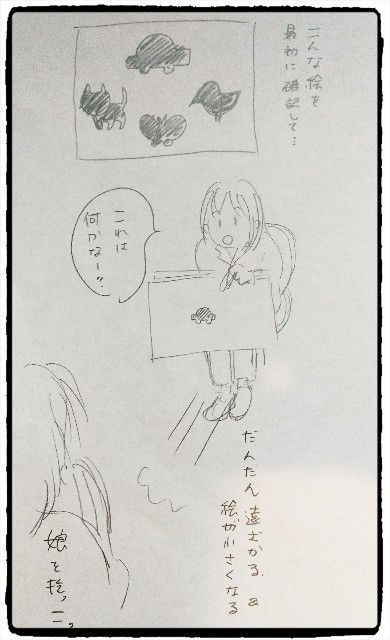 こんな絵を
最初に確認して…
これは
何かなー？
だんだん遠ざかる &
絵が小さくなる
娘を抱っこ。